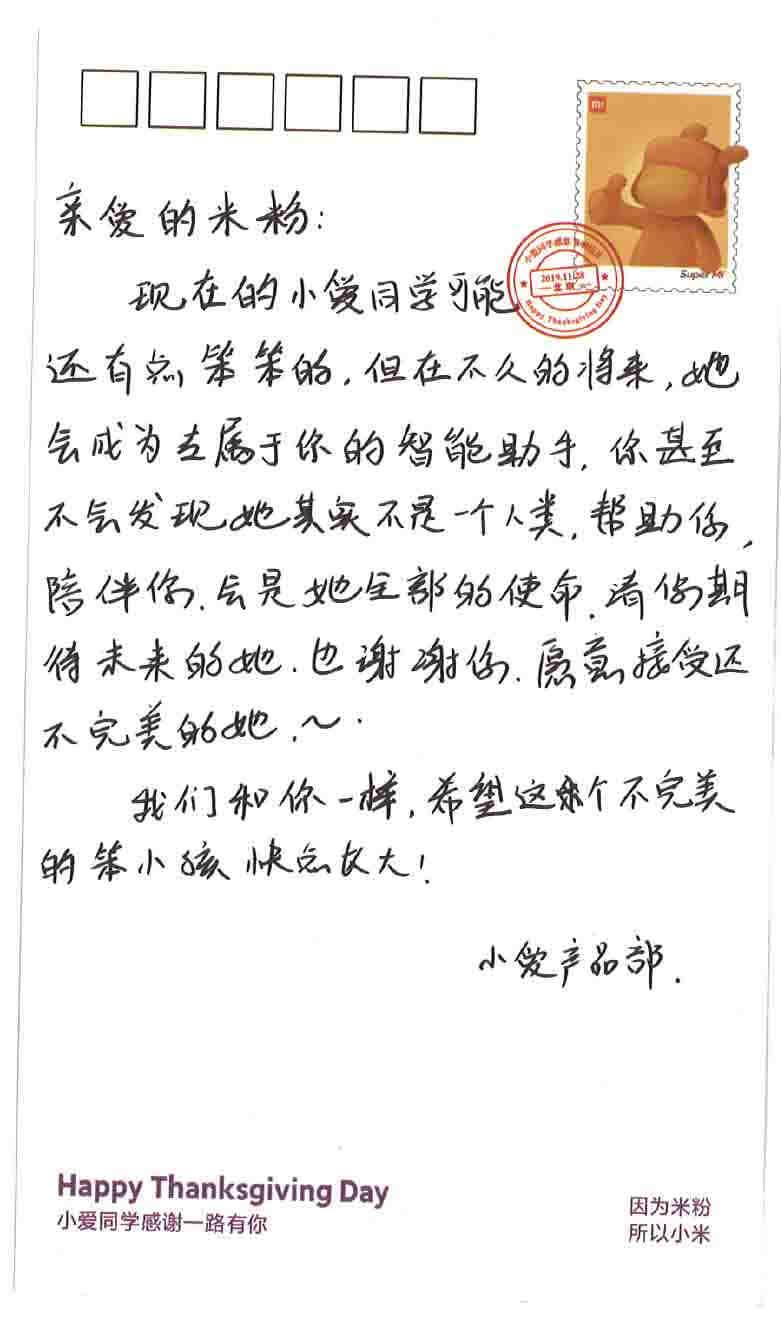 mi
Super Mi
2019.11.28
北京
Happy Thanksgiving Day
亲爱的米粉:
现在的小爱同学可能
还有点笨笨的,但在不久的将来,她
会成为专属于你的智能助手,你甚至
不会发现她其实不是一个人类,帮助你,
陪伴你,会是她全部的使命,请你期
待未来的她.也谢谢你.愿意接受还
不完美的她.~.
我们和你一样,希望这个不完美
的笨小孩快点长大!
小爱产品部.
Happy Thanksgiving Day
小爱同学感谢一路有你
因为米粉
所以小米